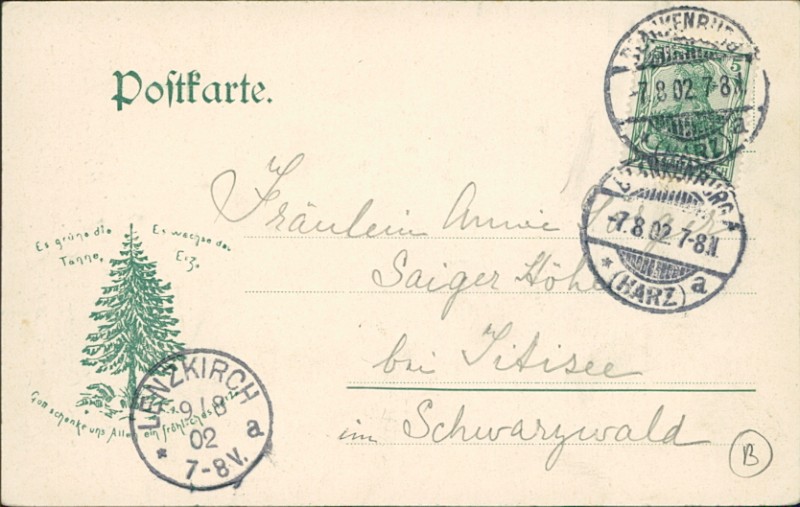 Postkarte.
BLANKENBURG
5
-7.8.02 7-8N.
a
(HARZ)
BLANKENBURG
-7.8.02 7-8N.
* (HARZ) a
Fräulein Annie
Saiger Höhe
bei Titisee
im Schwarzwald
Es grüne die Tanne,
Es wachse das Erz.
Gott schenke uns Allen ein fröhliches Herz.
LENZKIRCH
9/8
02
7-8V.
* a
B